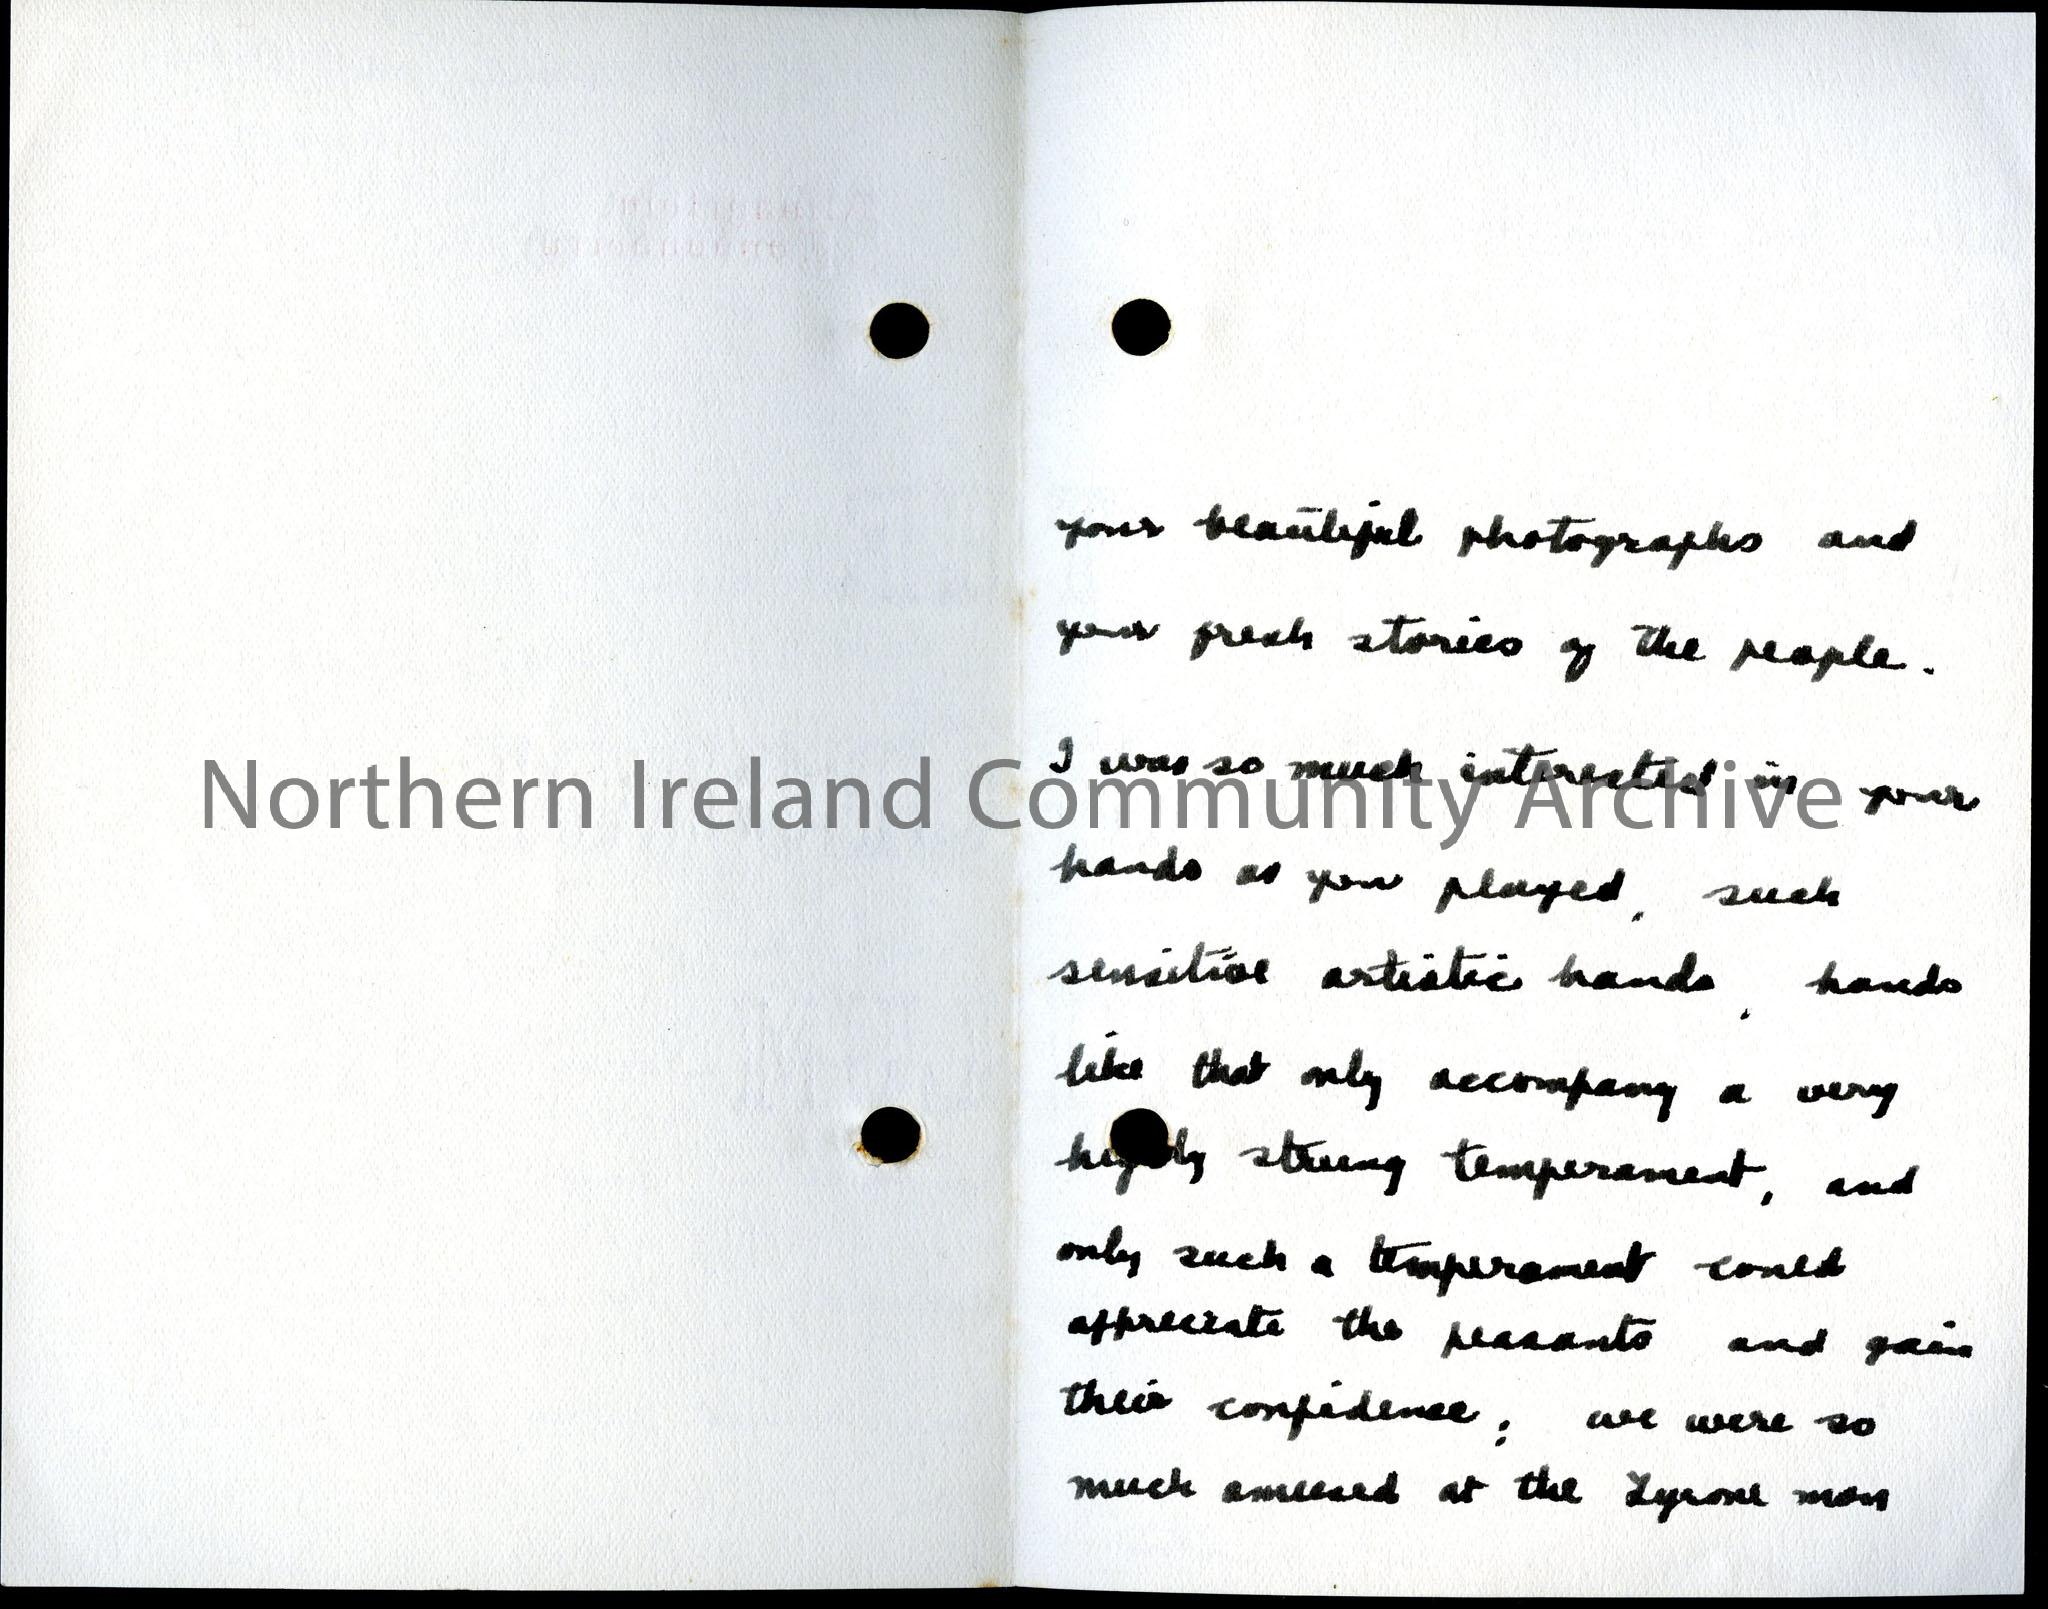 your beautiful photographs and
your fresh stories of the people.
I was so much interested in your
hands as you played, such
sensitive artistic hands, hands
like that only accompany a very
highly strung temperament, and
only such a temperament could
appreciate the peasants and gain
their confidence; we were so
much amused at the Tyrone man
Northern Ireland Community Archive